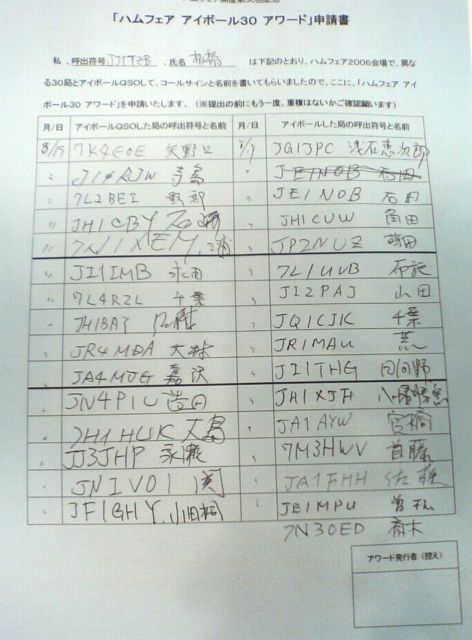 「ハムフェア アイボール30 アワード」申請書
私、呼出符号 、氏名 板橋 は下記のとおり、ハムフェア2006会場で、異な
る30局とアイボールQSOして、コールサインと名前を書いてもらいましたので、ここに、「ハムフェア アイ
ボール30 アワード」を申請いたします。(※提出の前にもう一度、重複はないかご確認願います)
月/日 アイボールQSOした局の呼出符号と名前 月/日 アイボールした局の呼出符号と名前
8/19 7K4EOE 矢野口 JG1JPC 浅石恵次郎
JE1NOB 石田
7L2BEI JE1NOB 石田
JH1CBY 石 JH1CUW 角田
JP2NUZ 蒔田
JI1IMB 永田 7L1UUB 布施
7L4RZL 千葉 JI2PAJ 山田
JH1BAY JQ1CJK 千葉
JR4MDA 大林 JR1MAU 荒
JA4MJG 嘉沢 JI1THG 日向野
JN4PIU 吉田 JH1XJH
7H1HUK 大島 JA1AYW 宮橋
JJ3JHP 永瀬 7M3HWV 首藤
JN1VOI 関 JA1FHH 佐
JF1GHY 小田桐 JE1MPU
7N3OED 斎木
アワード発行者(控え)